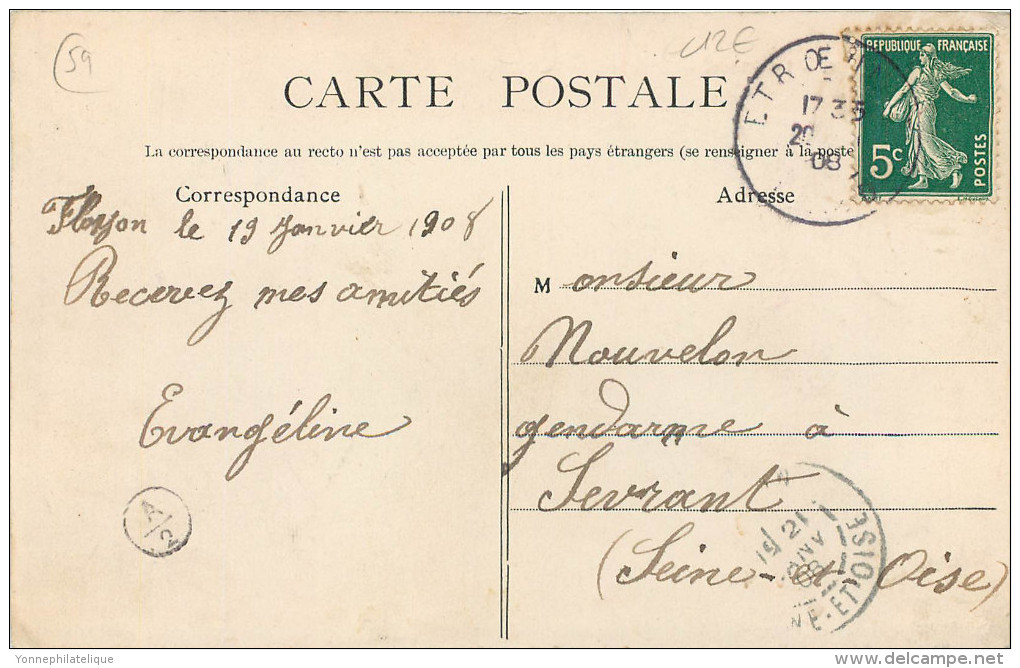 59
CARTE POSTALE
La correspondance au recto n'est pas acceptée par tous les pays étrangers (se renseigner à la poste
Correspondance
Adresse
REPUBLIQUE FRANÇAISE
5c
POSTES
ETRŒ
17 35
20
08
le 19 Janvier 1908
Recevez mes amitiés
Evangéline
A/2
Monsieur
Nouvelon
gendarme à
Sevrant
(Seine-et-Oise)
15 21
JANV
08
NE-ET-OISE
Yonnephilatelique
delcampe.net